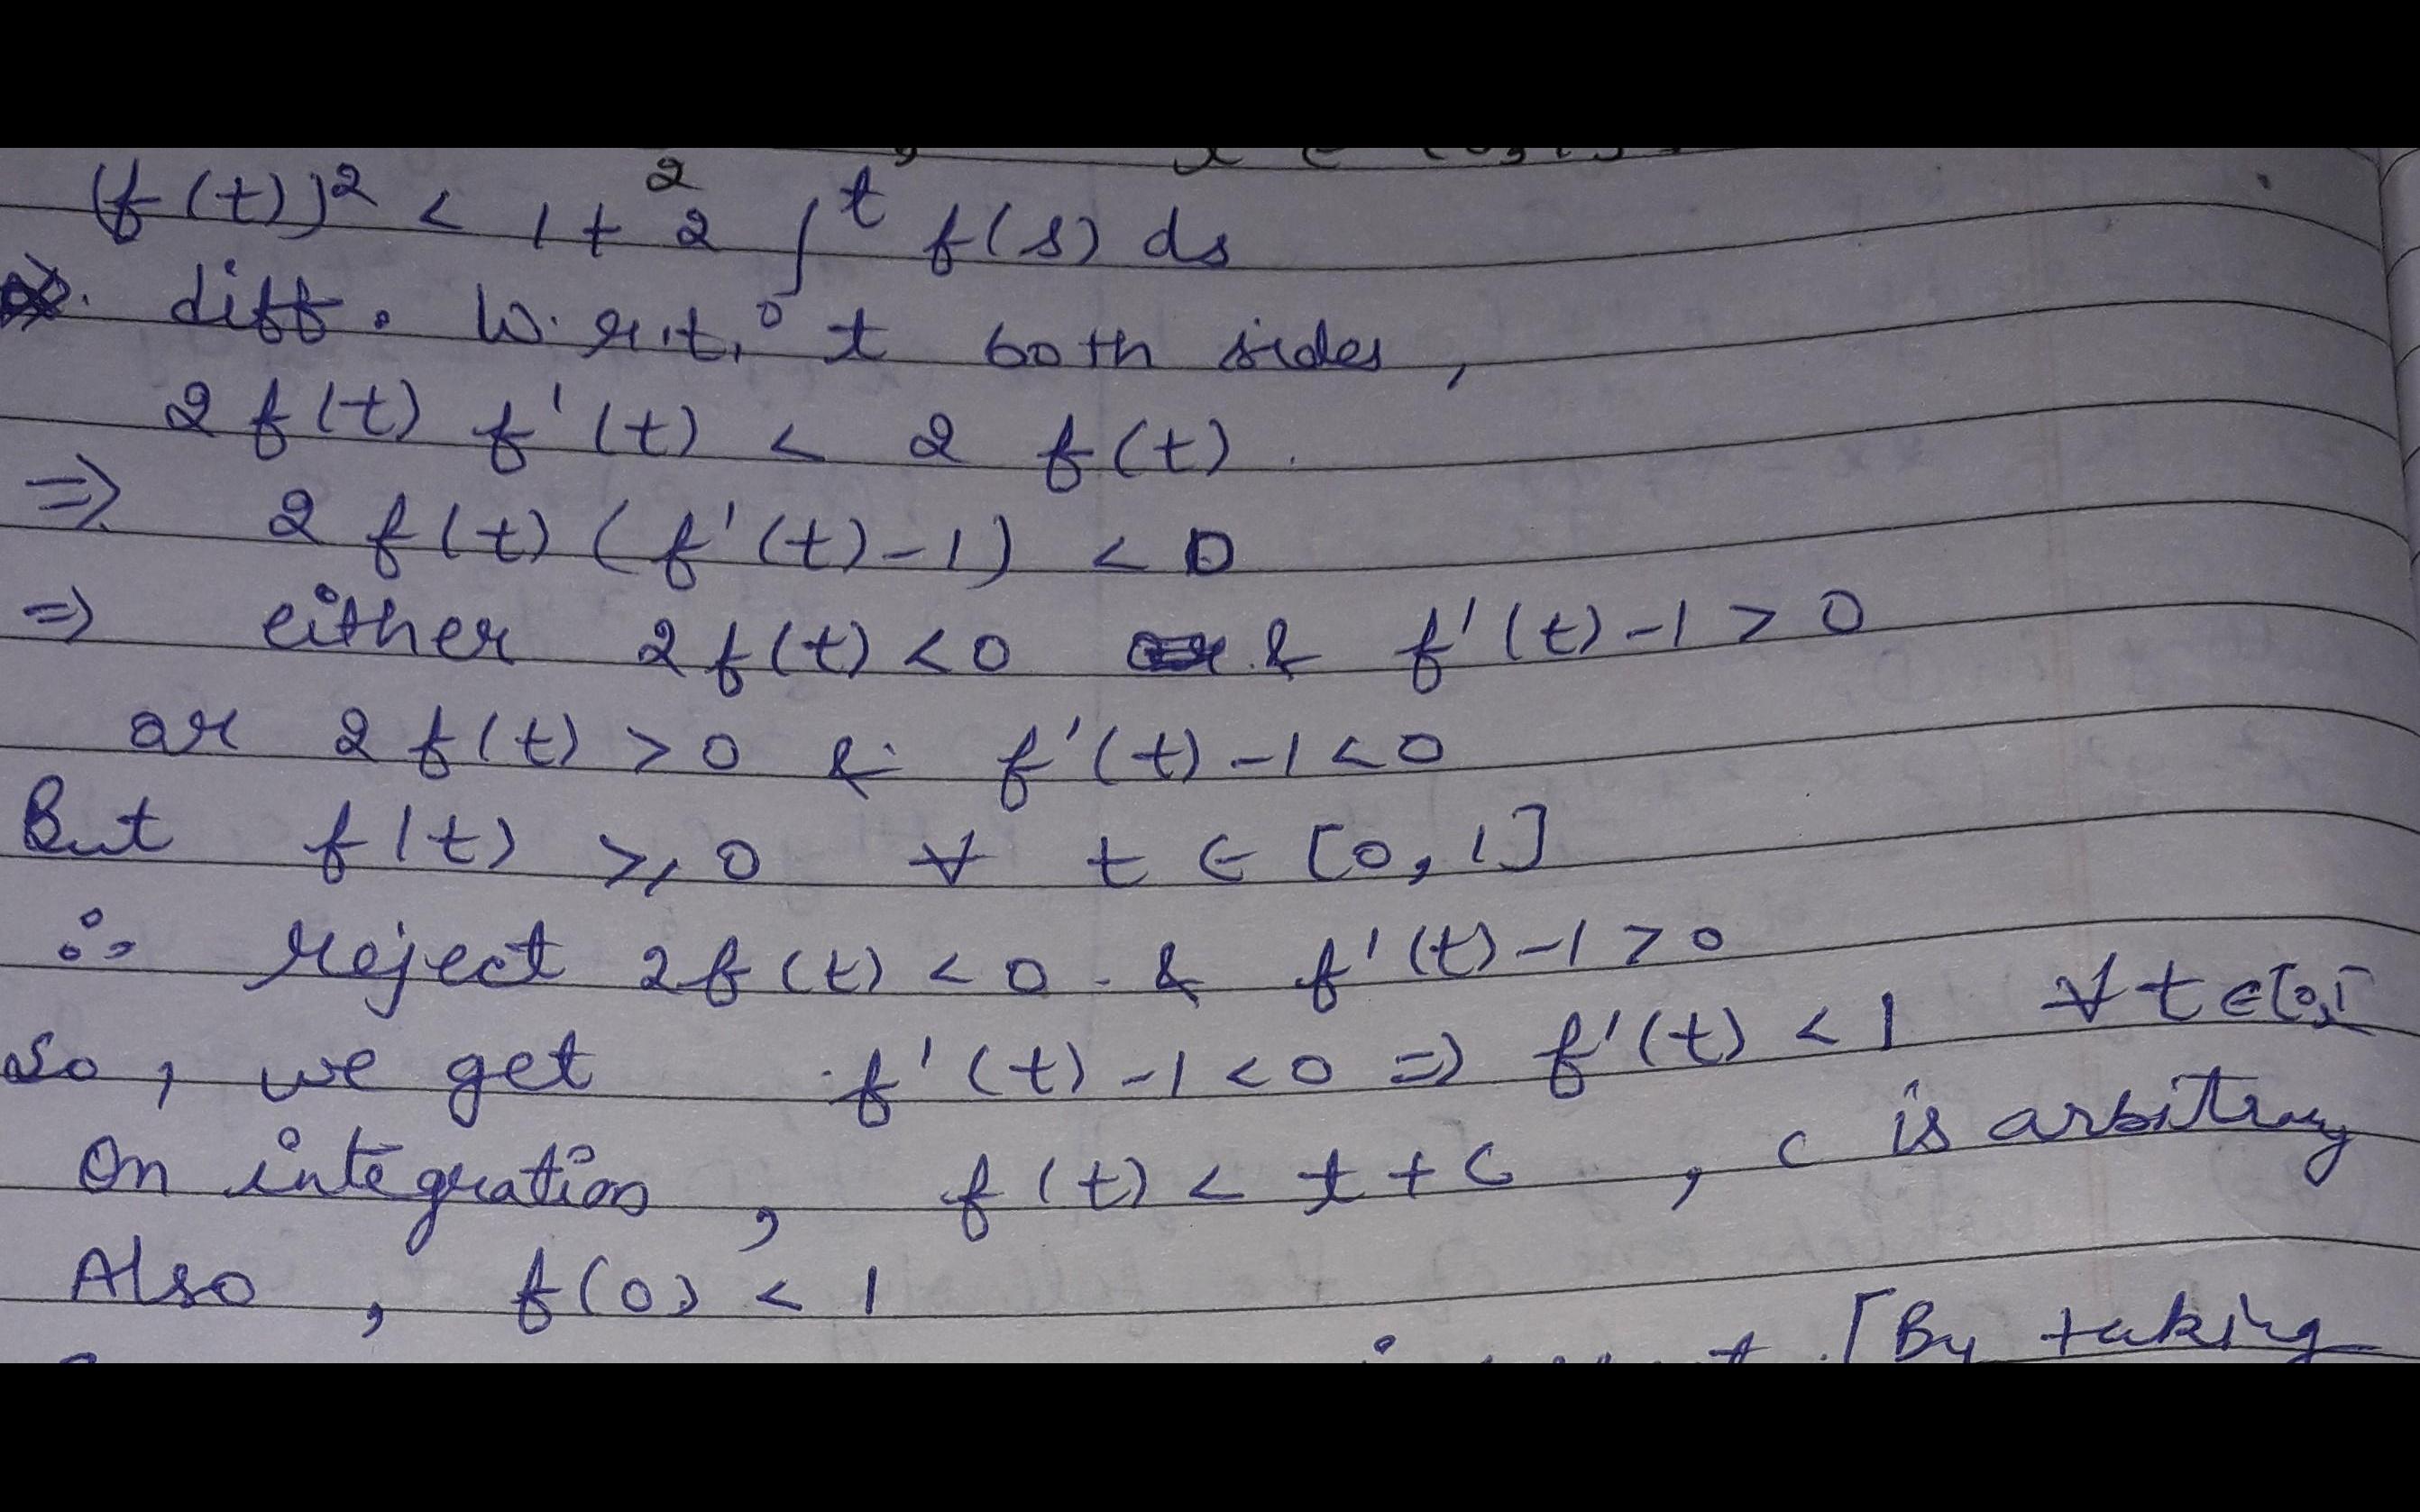 (f(t))² < 1 + 2 ∫₀ᵗ f(s) ds
diff. w.r.t. t both sides,
2 f(t) f'(t) < 2 f(t).
⇒ 2 f(t) (f'(t)-1) < 0
⇒ either 2f(t) < 0 & f'(t)-1 > 0
or 2 f(t) > 0 & f'(t)-1 < 0
But f(t) ≥ 0 ∀ t ∈ [0, 1]
∴ reject 2f(t) < 0 . & f'(t)-1 > 0
So, we get f'(t)-1 < 0 ⇒ f'(t) < 1 ∀ t ∈ [0,1
On integration, f(t) < t + c , c is arbitray
Also, f(0) < 1
[By taking